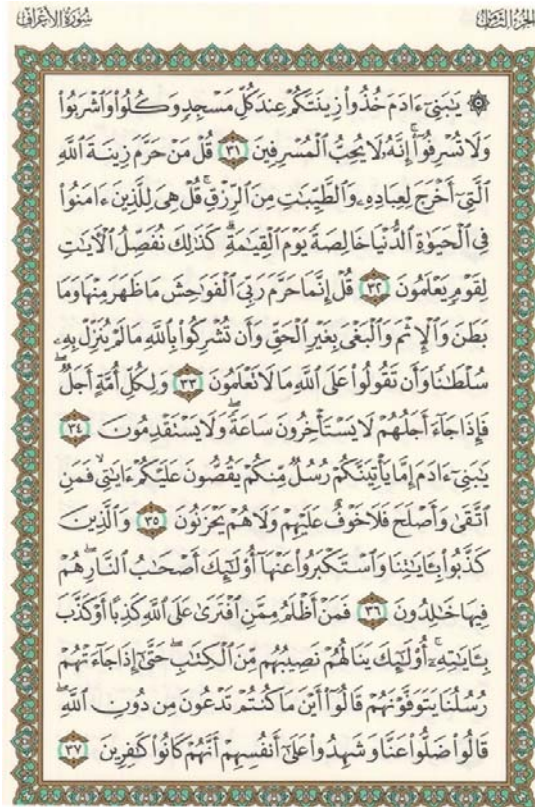 الجزء الثامن
سورة الأعراف
۞ يَـٰبَنِىٓ ءَادَمَ خُذُوا۟ زِينَتَكُمْ عِندَ كُلِّ مَسْجِدٍ وَكُلُوا۟ وَٱشْرَبُوا۟
وَلَا تُسْرِفُوٓا۟ ۚ إِنَّهُۥ لَا يُحِبُّ ٱلْمُسْرِفِينَ ٣١ قُلْ مَنْ حَرَّمَ زِينَةَ ٱللَّهِ
ٱلَّتِىٓ أَخْرَجَ لِعِبَادِهِۦ وَٱلطَّيِّبَـٰتِ مِنَ ٱلرِّزْقِ ۚ قُلْ هِىَ لِلَّذِينَ ءَامَنُوا۟
فِى ٱلْحَيَوٰةِ ٱلدُّنْيَا خَالِصَةً يَوْمَ ٱلْقِيَـٰمَةِ ۗ كَذَٰلِكَ نُفَصِّلُ ٱلْـَٔايَـٰتِ
لِقَوْمٍ يَعْلَمُونَ ٣٢ قُلْ إِنَّمَا حَرَّمَ رَبِّىَ ٱلْفَوَٰحِشَ مَا ظَهَرَ مِنْهَا وَمَا
بَطَنَ وَٱلْإِثْمَ وَٱلْبَغْىَ بِغَيْرِ ٱلْحَقِّ وَأَن تُشْرِكُوا۟ بِٱللَّهِ مَا لَمْ يُنَزِّلْ بِهِۦ
سُلْطَـٰنًا وَأَن تَقُولُوا۟ عَلَى ٱللَّهِ مَا لَا تَعْلَمُونَ ٣٣ وَلِكُلِّ أُمَّةٍ أَجَلٌ ۖ
فَإِذَا جَآءَ أَجَلُهُمْ لَا يَسْتَأْخِرُونَ سَاعَةً ۖ وَلَا يَسْتَقْدِمُونَ ٣٤
يَـٰبَنِىٓ ءَادَمَ إِمَّا يَأْتِيَنَّكُمْ رُسُلٌ مِّنكُمْ يَقُصُّونَ عَلَيْكُمْ ءَايَـٰتِى ۙ فَمَنِ
ٱتَّقَىٰ وَأَصْلَحَ فَلَا خَوْفٌ عَلَيْهِمْ وَلَا هُمْ يَحْزَنُونَ ٣٥ وَٱلَّذِينَ
كَذَّبُوا۟ بِـَٔايَـٰتِنَا وَٱسْتَكْبَرُوا۟ عَنْهَآ أُو۟لَـٰٓئِكَ أَصْحَـٰبُ ٱلنَّارِ ۖ هُمْ
فِيهَا خَـٰلِدُونَ ٣٦ فَمَنْ أَظْلَمُ مِمَّنِ ٱفْتَرَىٰ عَلَى ٱللَّهِ كَذِبًا أَوْ كَذَّبَ
بِـَٔايَـٰتِهِۦٓ ۚ أُو۟لَـٰٓئِكَ يَنَالُهُمْ نَصِيبُهُم مِّنَ ٱلْكِتَـٰبِ ۖ حَتَّىٰٓ إِذَا جَآءَتْهُمْ
رُسُلُنَا يَتَوَفَّوْنَهُمْ قَالُوٓا۟ أَيْنَ مَا كُنتُمْ تَدْعُونَ مِن دُونِ ٱللَّهِ ۖ
قَالُوا۟ ضَلُّوا۟ عَنَّا وَشَهِدُوا۟ عَلَىٰٓ أَنفُسِهِمْ أَنَّهُمْ كَانُوا۟ كَـٰفِرِينَ ٣٧